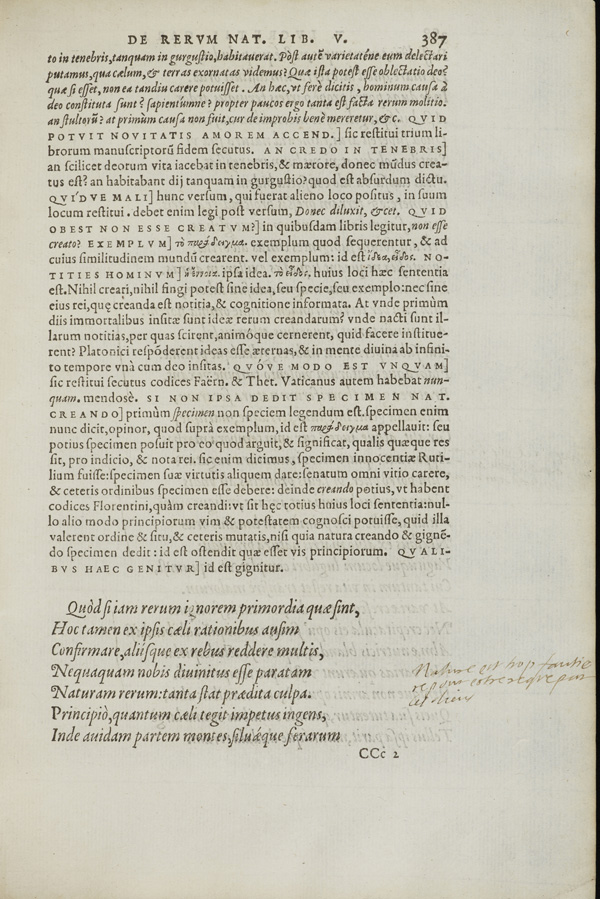 DE RERVM NAT. LIB. V. 387
to in tenebris, tanquam in gurgustio, habitauerat. Pòst autē varietaténe eum delectari
putamus, qua cælum, & terras exornatas videmus? Quæ ista potest esse oblectatio deo?
quæ si esset, non ea tandiu carere potuisset. An hæc, vt ferè dicitis, hominum causa à
deo constituta sunt? sapientumne? propter paucos ergo tanta est facta rerum molitio.
an stultorū? at primùm causa non fuit, cur de improbis benè mereretur, &c. QVID
POTVIT NOVITATIS AMOREM ACCEND.] sic restitui trium li-
brorum manuscriptorū fidem secutus. AN CREDO IN TENEBRIS]
an scilicet deorum vita iacebat in tenebris, & mærore, donec mūdus crea-
tus est? an habitabant dij tanquam in gurgustio? quod est absurdum dictu.
QVI'DVE MALI] hunc versum, qui fuerat alieno loco positus, in suum
locum restitui. debet enim legi post versum, Donec diluxit, &cet. QVID
OBEST NON ESSE CREATVM?] in quibusdam libris legitur, non esse
creato? EXEMPLVM] τὸ παράδειγμα. exemplum quod sequerentur, & ad
cuius similitudinem mundū crearent. vel exemplum: id est ἰδέα, εἶδος. NO-
TITIES HOMINVM] ἡ ἔννοια. ipsa idea. τὸ εἶδος. huius loci hæc sententia
est. Nihil creari, nihil fingi potest sine idea, seu specie, seu exemplo: nec sine
eius rei, quę creanda est notitia, & cognitione informata. At vnde primùm
diis immortalibus insitæ sunt ideæ rerum creandarum? vnde nacti sunt il-
larum notitias, per quas scirent, animóque cernerent, quid facere institue-
rent? Platonici respōderent ideas esse æternas, & in mente diuina ab infini-
to tempore vnà cum deo insitas. QVÓVE MODO EST VNQVAM]
sic restitui secutus codices Faërn. & Thet. Vaticanus autem habebat nun-
quam. mendosè. SI NON IPSA DEDIT SPECIMEN NAT.
CREANDO] primùm specimen non speciem legendum est. specimen enim
nunc dicit, opinor, quod suprà exemplum, id est παράδειγμα appellauit: seu
potius specimen posuit pro eo quod arguit, & significat, qualis quæque res
sit, pro indicio, & nota rei. sic enim dicimus, specimen innocentiæ Ruti-
lium fuisse: specimen suæ virtutis aliquem dare: senatum omni vitio carere,
& ceteris ordinibus specimen esse debere: deinde creando potius, vt habent
codices Florentini, quàm creandi: vt sit hęc totius huius loci sententia: nul-
lo alio modo principiorum vim & potestatem cognosci potuisse, quid illa
valerent ordine & situ, & ceteris mutatis, nisi quia natura creando & gignē-
do specimen dedit: id est ostendit quæ esset vis principiorum. QVALI-
BVS HAEC GENITVR] id est gignitur.
Quòd si iam rerum ignorem primordia quæ sint,
Hoc tamen ex ipsis cæli rationibus ausim
Confirmare, aliisque ex rebus reddere multis,
Nequaquam nobis diuinitus esse paratam
Naturam rerum: tanta stat prædita culpa.
Principiò, quantum cæli tegit impetus ingens,
Inde auidam partem montes, siluæque ferarum
Nature est
CCc 2